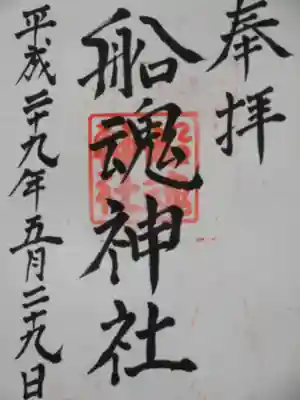 奉拝
船魂神社
平成二十九年五月二十九日